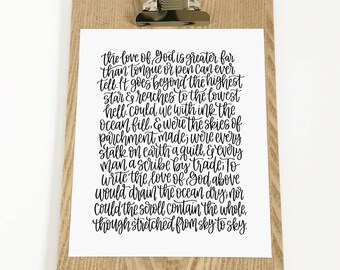 the love of God is greater far
than tongue or pen can ever
tell. It goes beyond the highest
star & reaches to the lowest
hell. could we with ink the
ocean fill, & were the skies of
parchment made; were every
stalk on earth a quill, & every
man a scribe by trade; To
write the love of God above
would drain the ocean dry; nor
could the scroll contain the whole,
though stretched from sky to sky.